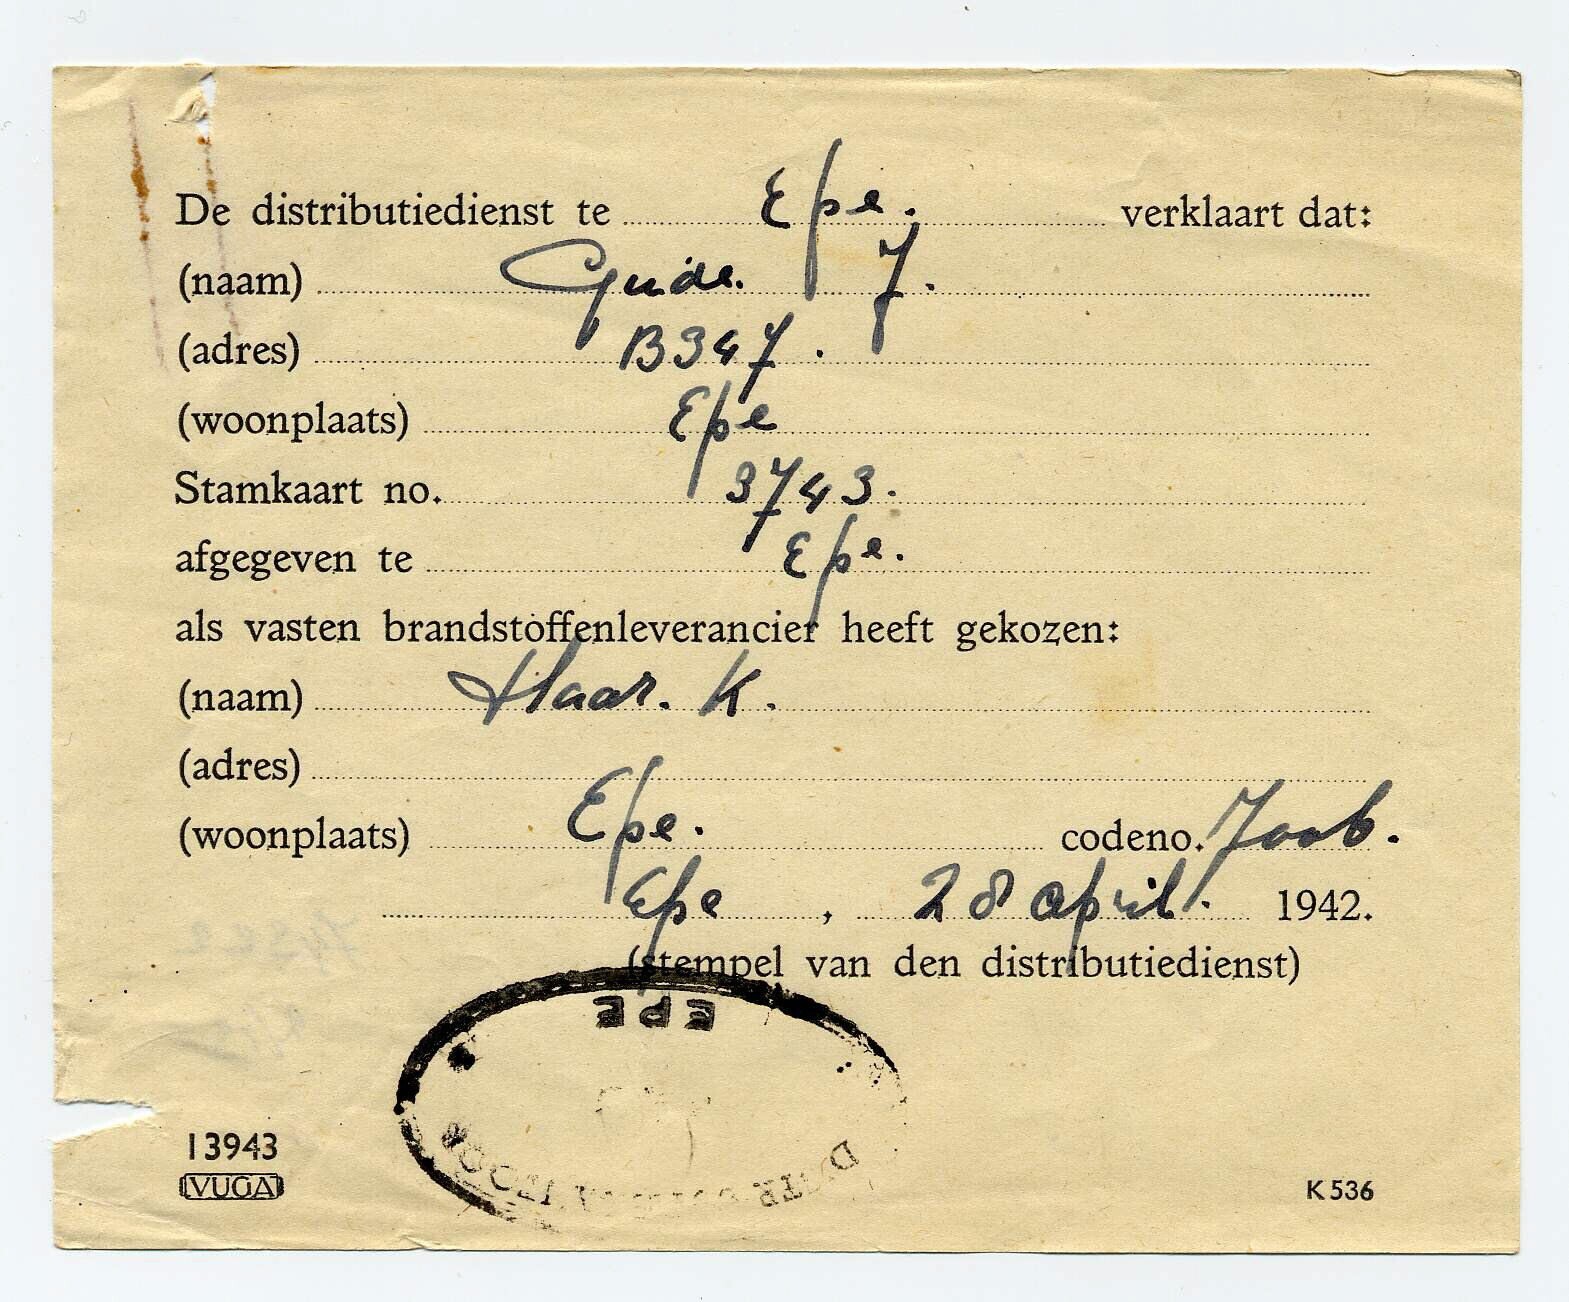 De distributiedienst te Epe. verklaart dat:
(naam) Gude. J.
(adres) B347.
(woonplaats) Epe
Stamkaart no. 3743.
afgegeven te Epe.
als vasten brandstoffenleverancier heeft gekozen:
(naam) Haar. K.
(adres)
(woonplaats) Epe. codeno.
Epe, 28 april. 1942.
(stempel van den distributiedienst)
EPE
13943
VUGA
K 536